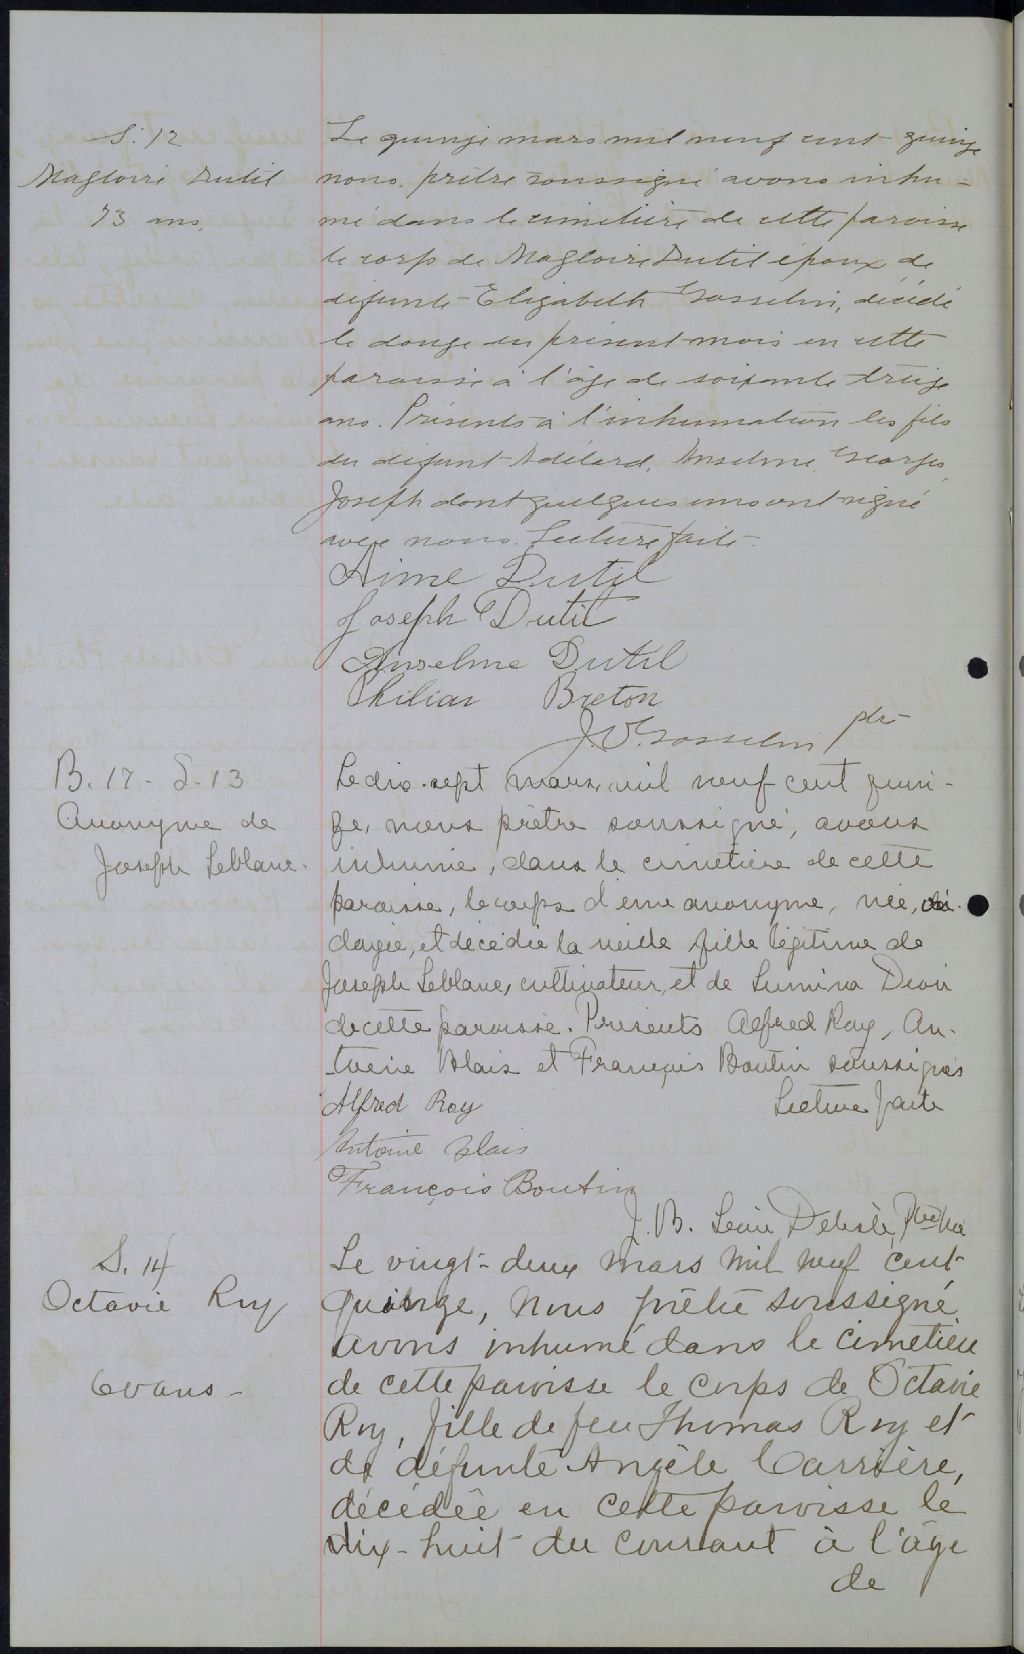 S. 12
Magloire Dutil
73 ans,
Le quinze mars mil neuf cent quinze
nous, prêtre soussigné avons inhu-
mé dans le cimetière de cette paroisse
le corps de Magloire Dutil époux de
défunte Elizabeth Gosselin, décédé
le douze du présent mois en cette
paroisse à l'âge de soixante treize
ans. Présents à l'inhumation les fils
du défunt Adélard, Anselme, Georges,
Joseph dont quelques uns ont signé
avec nous. Lecture faite.
Aimé Dutil
Joseph Dutil
Anselme Dutil
Breton
J. V. Gosselin ptr
B. 17 - S. 13
Anonyme de
Joseph Leblanc.
Le dix-sept mars, mil neuf cent quin-
ze, nous prêtre soussigné, avons
inhumé, dans le cimetière de cette
paroisse, le corps d'une anonyme, née,
et décédée la veille fille légitime de
Joseph Leblanc, cultivateur, et de Lumina Dion
de cette paroisse. Présents Alfred Roy, An-
toine Blais et François Boutin soussignés
Alfred Roy
Lecture faite
Antoine Blais
François Boutin
J. B.
S. 14
Octavie Roy
60 ans -
Le vingt-deux mars mil neuf cent
quinze, nous prêtre soussigné
avons inhumé dans le cimetière
de cette paroisse le corps de Octavie
Roy, fille de feu Thomas Roy et
de défunte Angèle Carrière,
décédée en cette paroisse le
dix-huit du courant à l'âge
de